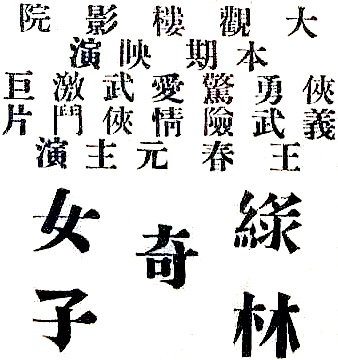 大觀樓影院
本期映演
俠義
勇武
驚險
愛情
武俠
激鬥
巨片
王春元主演
綠林
奇
女子